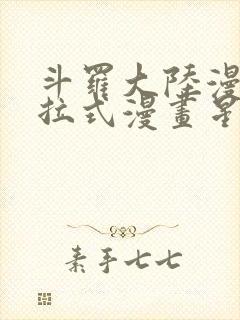 斗羅大陸漫
拉式漫畫星
素手七七